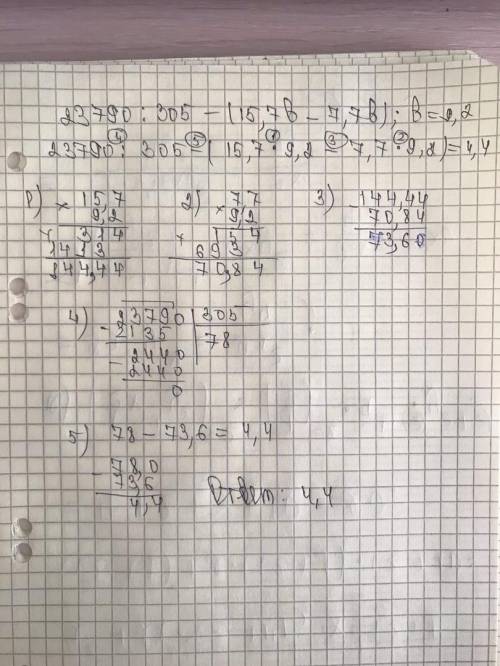 23790 : 305 - (15,7в - 7,7в); в = 9,2
23790 : 305 - (15,7 · 9,2 - 7,7 · 9,2) = 4,4
4 5 1 3 2
1) × 15,7
9,2
+ 314
1413
144,44
2) × 7,7
9,2
+ 154
693
70,84
3) - 144,44
70,84
73,60
4) - 23790 | 305
2135 | 78
- 2440
2440
0
5) 78 - 73,6 = 4,4
- 78,0
73,6
4,4
Ответ: 4,4